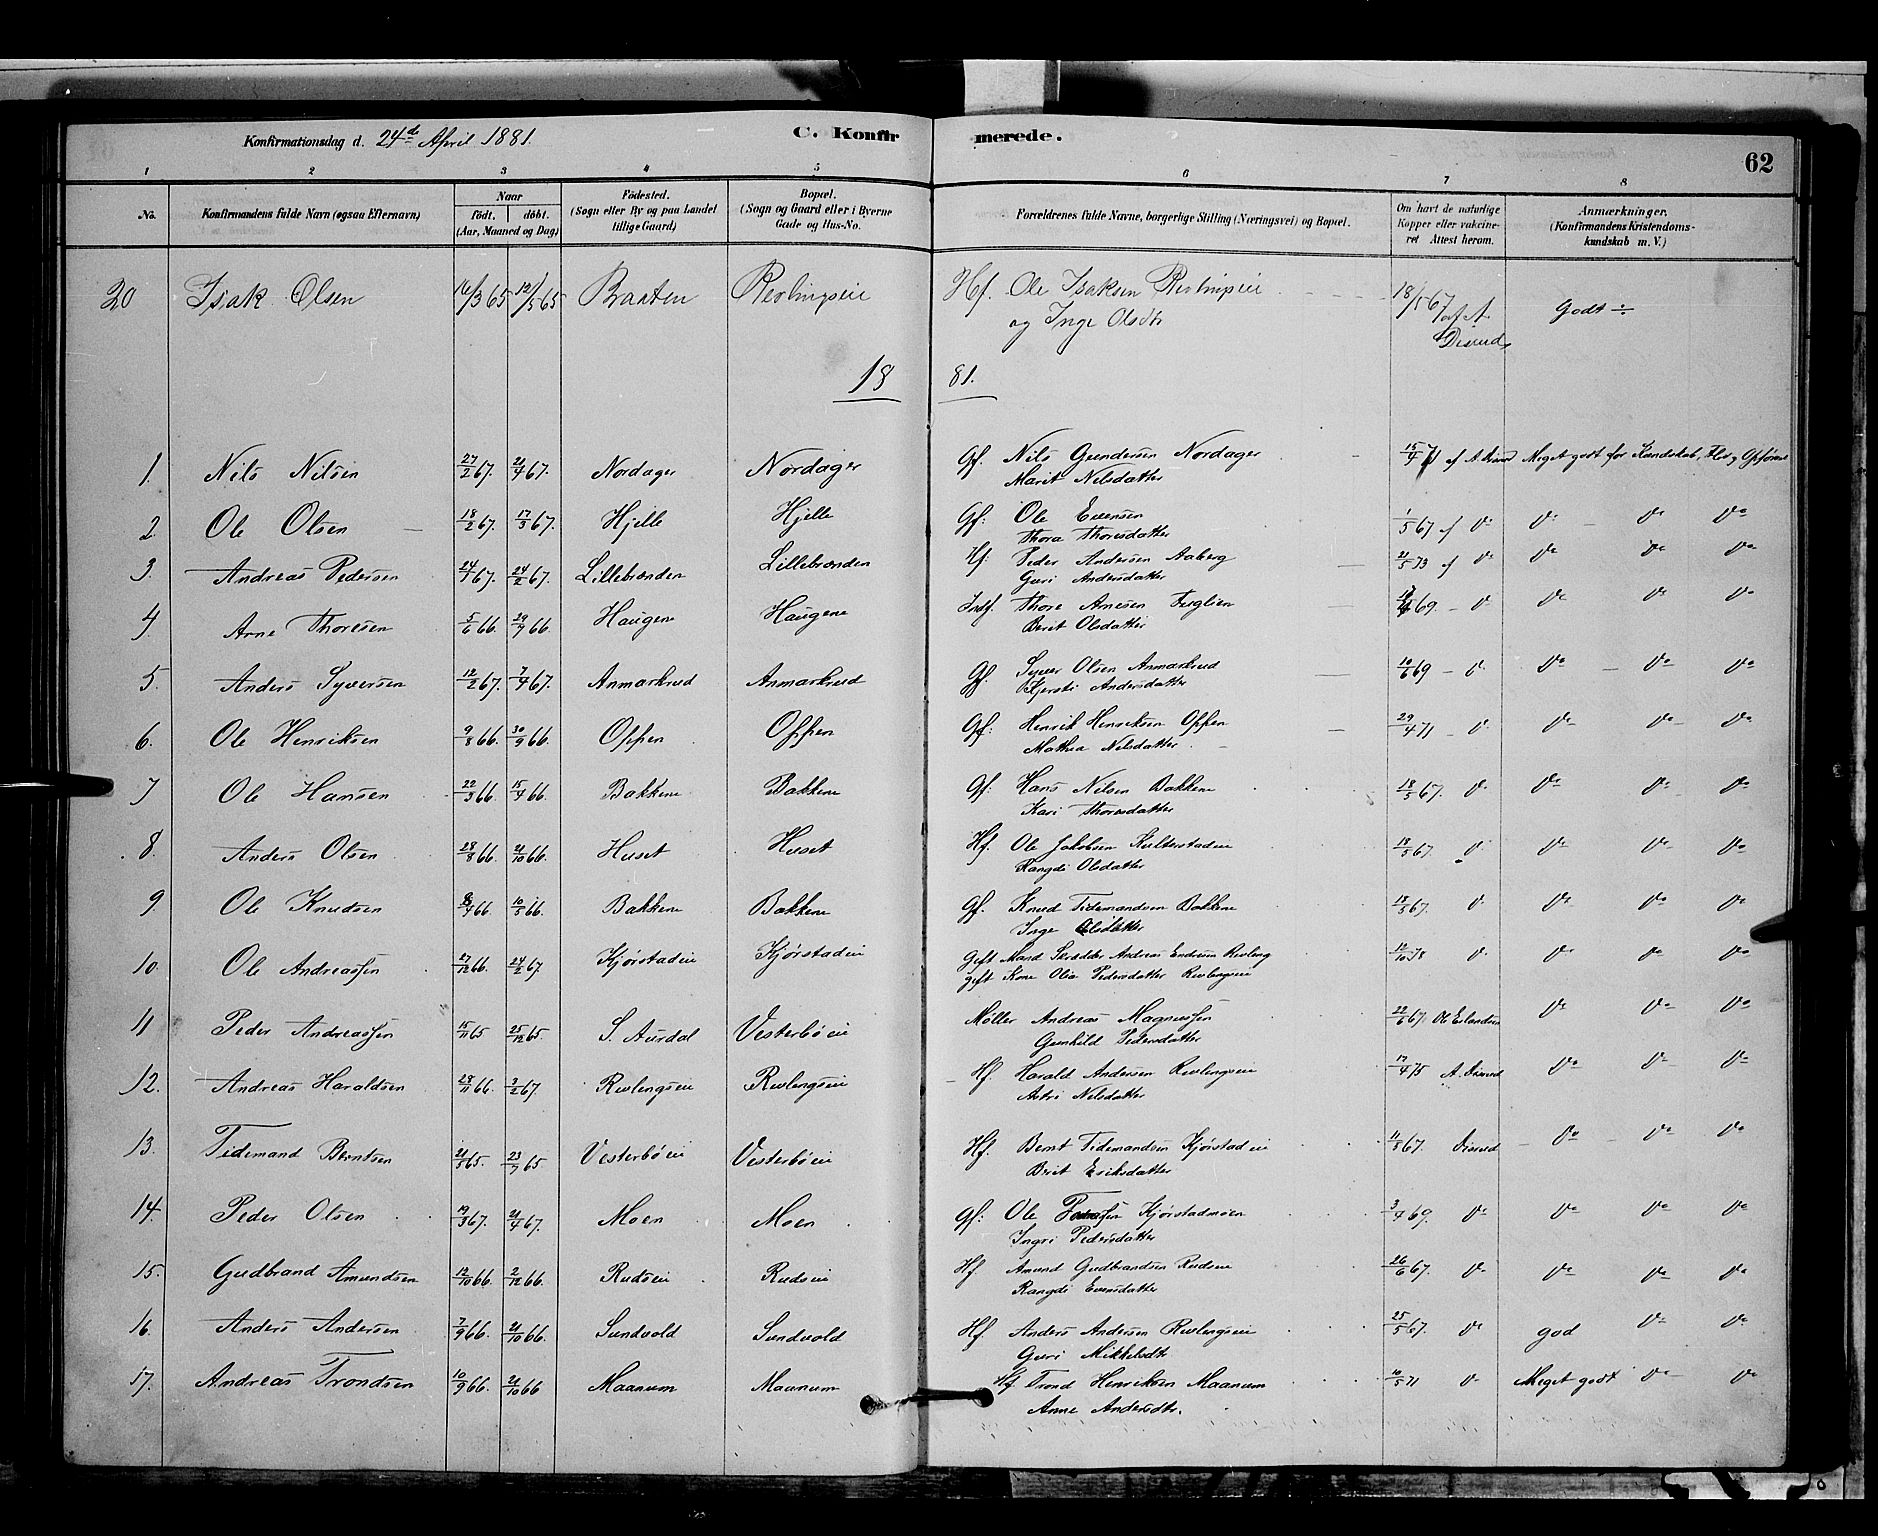 Konfirmationsdag d. 24d April 1881. C. Konfirmerede. 62
1 2 3 4 5 6 7 8
No. Konfirmandens fulde Navn (ogsaa Efternavn) Naar født. døbt. (Aar, Maaned og Dag) Fødested. (Sogn eller By og paa Landet tillige Gaard) Bopæl. (Sogn og Gaard eller i Byerne Gade og Hus-No. Forældrenes fulde Navne, borgerlige Stilling (Næringsvei) og Bopæl. Om havt de naturlige Kopper eller vakcineret Attest herom. Anmærkninger. (Konfirmandens Kristendomskundskab m. V.)
20 Isak Olsen 16/3 65 12/5 65 Braaten Revlingseie Hf. Ole Isaksen Revlingseie 18/5 67 af A Disrud Godt ÷
og Inge Olsdtr
1881.
1. Nils Nilsen 27/2 67. 21/4 67. Nordager Nordager Gf. Nils Gundersen Nordager 15/4 71 af A. Disrud Meget godt for Kundskab, Flid og Opførsel
Marit Nilsdatter
2. Ole Olsen 18/2 67. 17/3 67. Hjelle Hjelle Gf: Ole Evensen 1/5 67 af Do Do Do Do
Thora Thoresdatter
3. Andreas Pedersen 24/1 67. 24/2 67. Lillebrænden Lillebrænden Hf: Peder Andersen Aaberg 21/5 73 af Do Do Do Do
Guri Andersdatter
4 Arne Thoresen 5/6 66. 29/7 66. Haugene Haugene Indf. Thore Arnesen Fuglien 69 - Do Do Do Do
Berit Olsdatter
5. Anders Syversen 12/2 67. 7/4 67. Anmarkrud Anmarkrud Gf. Syver Olsen Anmarkrud 10/6 69 - Do Do Do Do
Kjersti Andersdatter
6. Ole Henriksen 9/8 66. 30/9 66. Oppen Oppen Gf: Henrik Henriksen Oppen 29/4 71 - Do Do Do Do
Mathea Nilsdatter
7 Ole Hansen 22/3 66. 15/4 66. Bakkene Bakkene Gf: Hans Nilsen Bakkene 18/5 67. Do Do Do Do
Kari Thoresdatter
8. Anders Olsen 28/8 66. 21/10 66. Huset Huset Hf. Ole Jakobsen 18/5 67. Do Do Do Do
Rangdi Olsdatter
9. Ole Knudsen 8/4 66. 10/5 66. Bakkene Bakkene Gf. Knud Tidemandsen Bakkene 18/5 67. Do Do Do Do
Inge Olsdatter
10. Ole Andreassen 27/12 66. 24/2 67. Kjørstadeie Kjørstadeie Gift Mand Skrædder Andreas Endresen Revling 12/10 78 Do Do Do Do
gift Kone Olia Pedersdatter Revlingseie
11 Peder Andreassen 15/11 65 25/12 65. S. Aurdal Vesterbøeie Møller Andreas Magnussen 22/6 67. Ole Erlandsen Do Do Do
Gunhild Pedersdatter
12. Andreas Haraldsen 28/11 66. 3/2 67. Revlengseie Revlengseie Hf. Harald Andersen Revlengseie 17/4 75 A. Disrud Do Do Do
Astri Nilsdatter
13. Tidemand Berntsen 21/5 65. 23/7 65 Vesterbøeie Vesterbøeie Hf. Bernt Tidemandsen Kjørstadeie 11/8 67. Disrud Do Do Do
Berit Eriksdatter
14. Peder Olsen 19/3 67. 21/4 67. Moen Moen Gf: Ole Kjørstadmoen 3/4 69. Do Do Do Do
Ingri Pedersdatter
15. Gudbrand Amundsen 12/10 66. 2/12 66. Rudseie Rudseie Hf Amund Gudbrandsen Rudseie 26/6 67. Do Do Do Do
Rangdi Evensdatter
16. Anders Andersen 7/9 66. 21/10 66. Sundvold Sundvold Hf Anders Andersen Revlengseie 25/5 67. Do god Do Do
Guri Mikkelsdtr
17. Andreas Trondsen 10/9 66. 21/10 66 Maanum Maanum Hf Trond Henriksen Maanum 10/5 71 Do Meget godt Do Do
Anne Andersdtr.